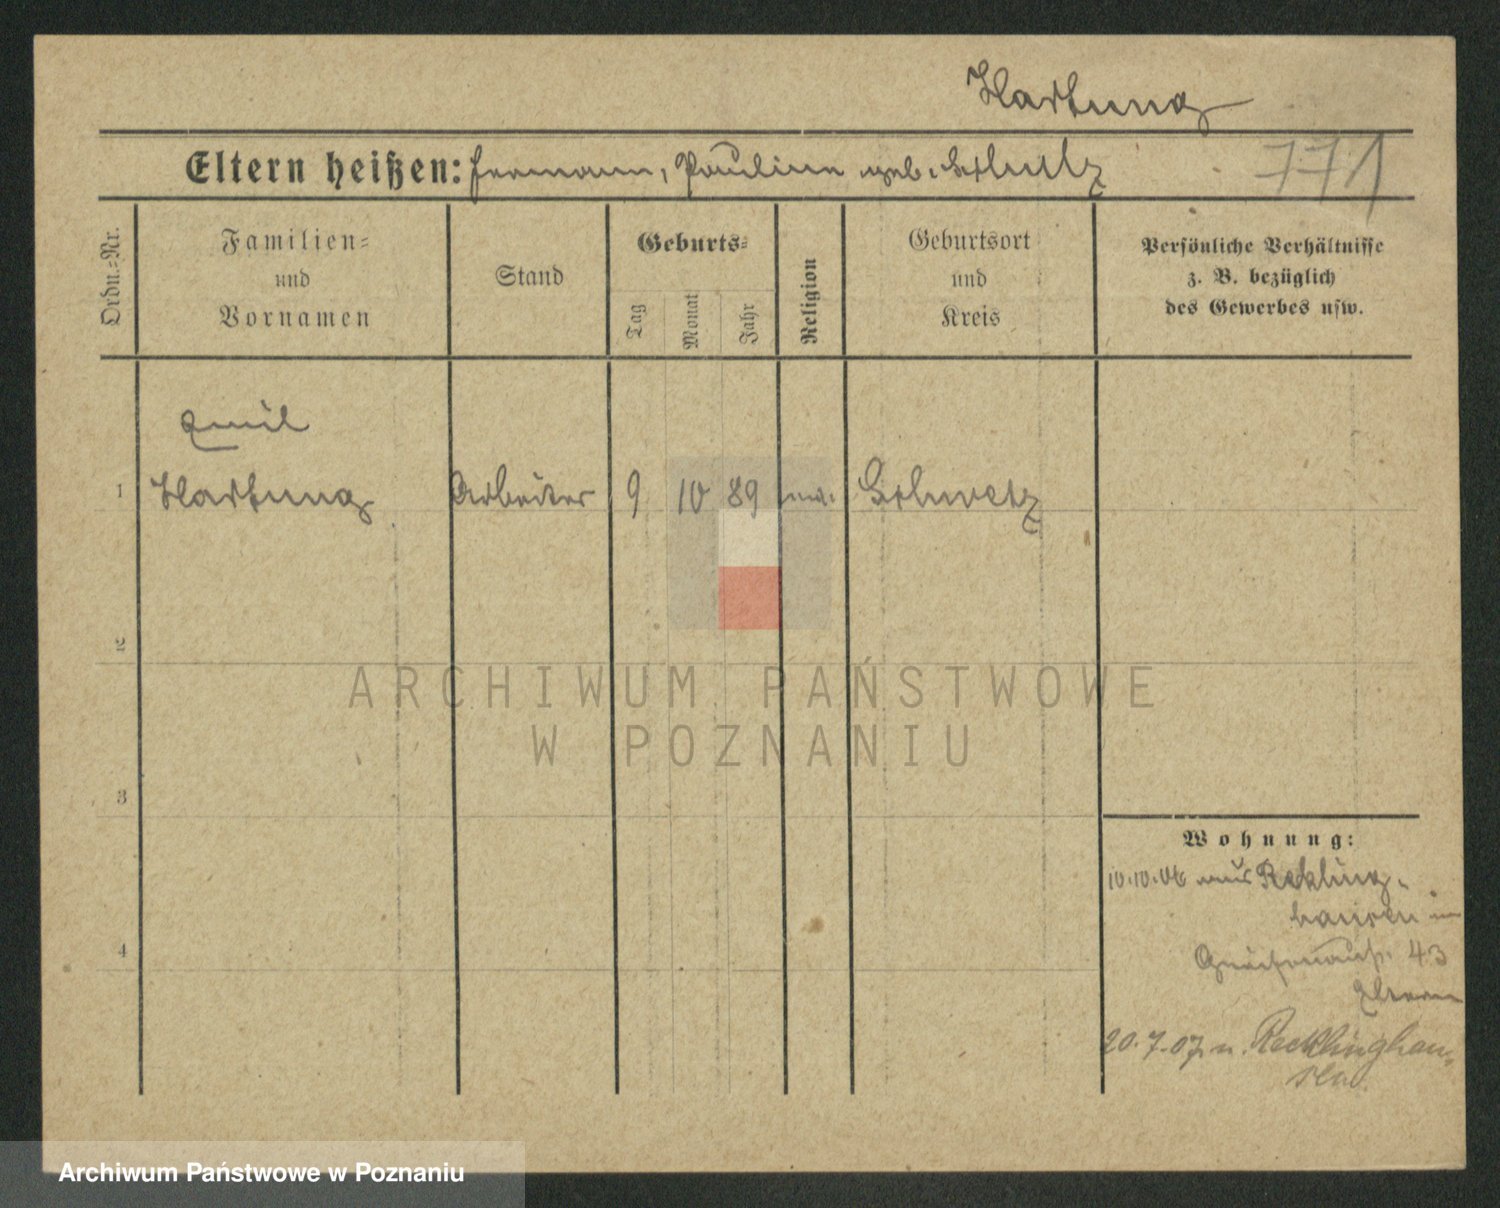 Hartung
Eltern heißen: Hermann, Pauline geb. Schultz
771
Ordn.=Nr.
Familien=
und
Vornamen
Stand
Geburts=
Tag
Monat
Jahr
Religion
Geburtsort
und
Kreis
Persönliche Verhältnisse
z. B. bezüglich
des Gewerbes usw.
Emil
1 Hartung Arbeiter 9 10 89 Schwetz
2
ARCHIWUM PAŃSTWOWE
W POZNANIU
3
Wohnung:
10.10.06 aus Reckling-
hausen in
4
43
Eltern
20.7.07 n. Recklinghau-
sen.
Archiwum Państwowe w Poznaniu